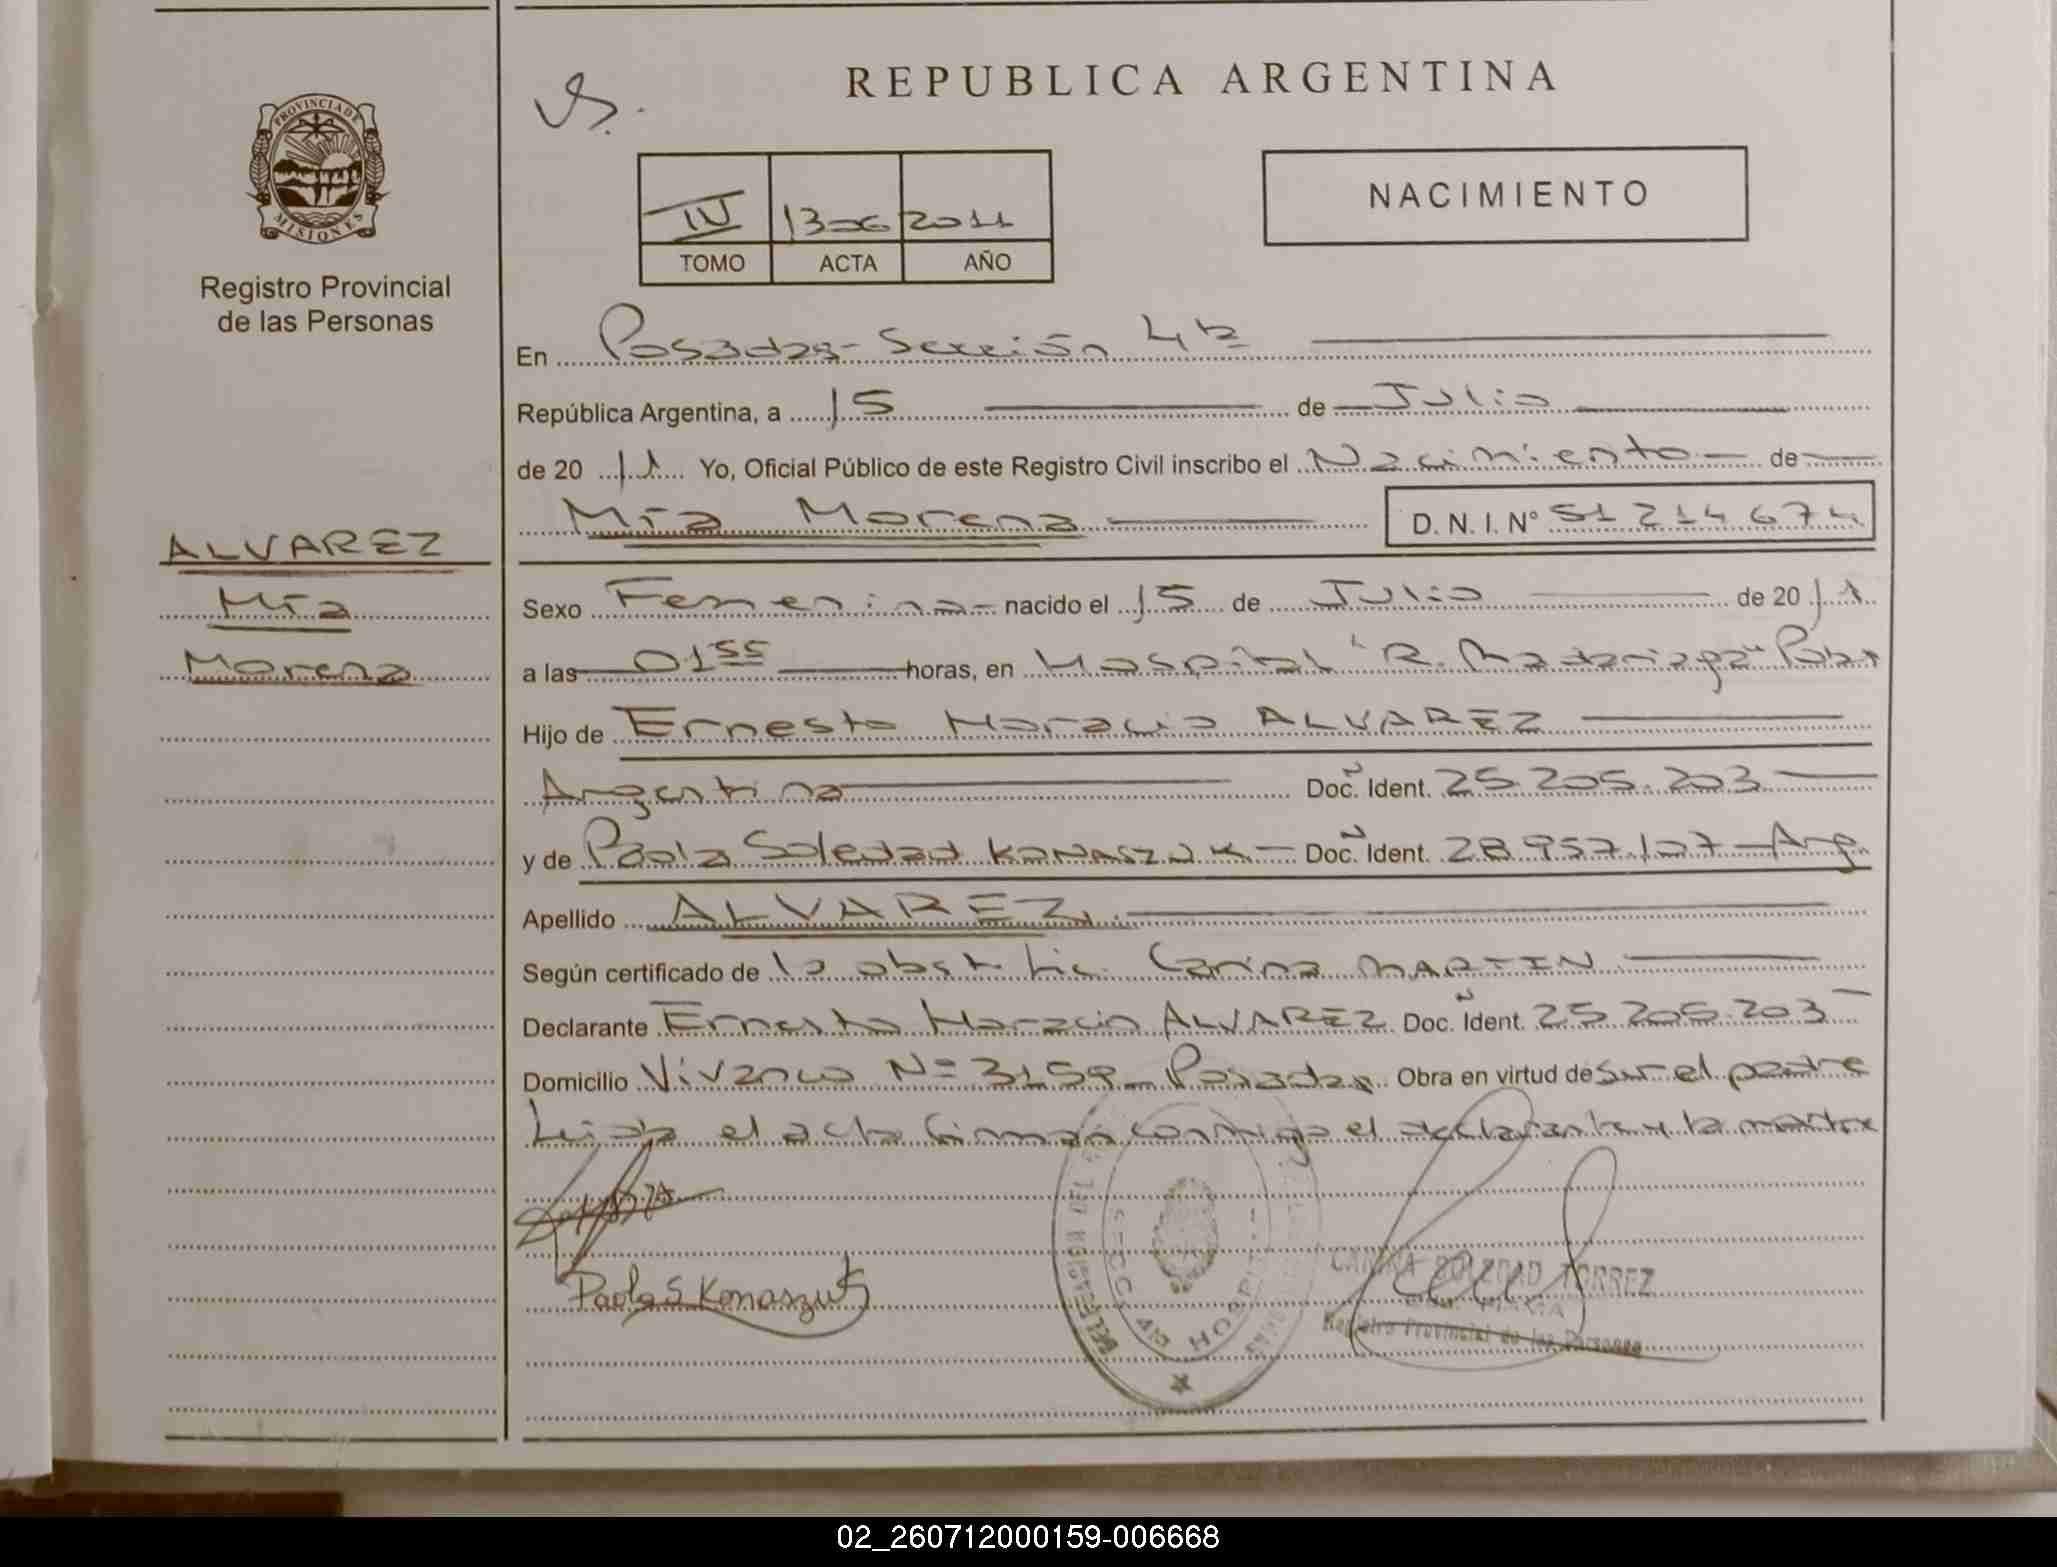 REPUBLICA ARGENTINA
PROVINCIA DE
MISIONES
Registro Provincial
de las Personas
NACIMIENTO
IV 1306 2011
TOMO ACTA AÑO
En Posadas - Sección 4ta
República Argentina, a 15 de Julio
de 20 11 Yo, Oficial Público de este Registro Civil inscribo el Nacimiento de
Mía Morena D. N. I. Nº 51 214 674
ALVAREZ
Mía
Morena
Sexo Femenino nacido el 15 de Julio de 20 11
a las 01 55 horas, en Hospital "R. Madariaga"
Hijo de Ernesto Horacio ALVAREZ
Argentino Doc. Ident. 25.205.203
y de Paola Soledad KONASZUK Doc. Ident. 28.957.107 - Arg.
Apellido ALVAREZ
Según certificado de la obst. Lic. Carina MARTIN
Declarante Ernesto Horacio ALVAREZ Doc. Ident. 25.205.203
Domicilio Vivanco Nº 3159 - Posadas Obra en virtud de ser el padre
Leida el acta firman conmigo el declarante y la madre
Paola S Konaszuk
SECCION 4ta HOSPITAL
SOLEDAD TORREZ
Registro Provincial de las Personas
02_260712000159-006668